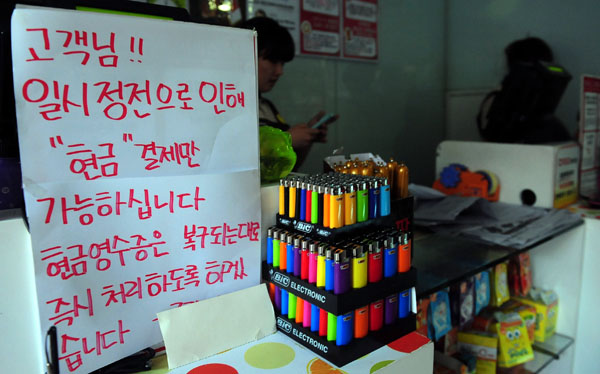 고객님!!
일시정전으로 인해
"현금" 결제만
가능하십니다
현금영수증은 복구되는대로
즉시 처리하도록 하겠
습니다
BIC ELECTRONIC
BIC ELECTRONIC
BIC ELECTRONIC